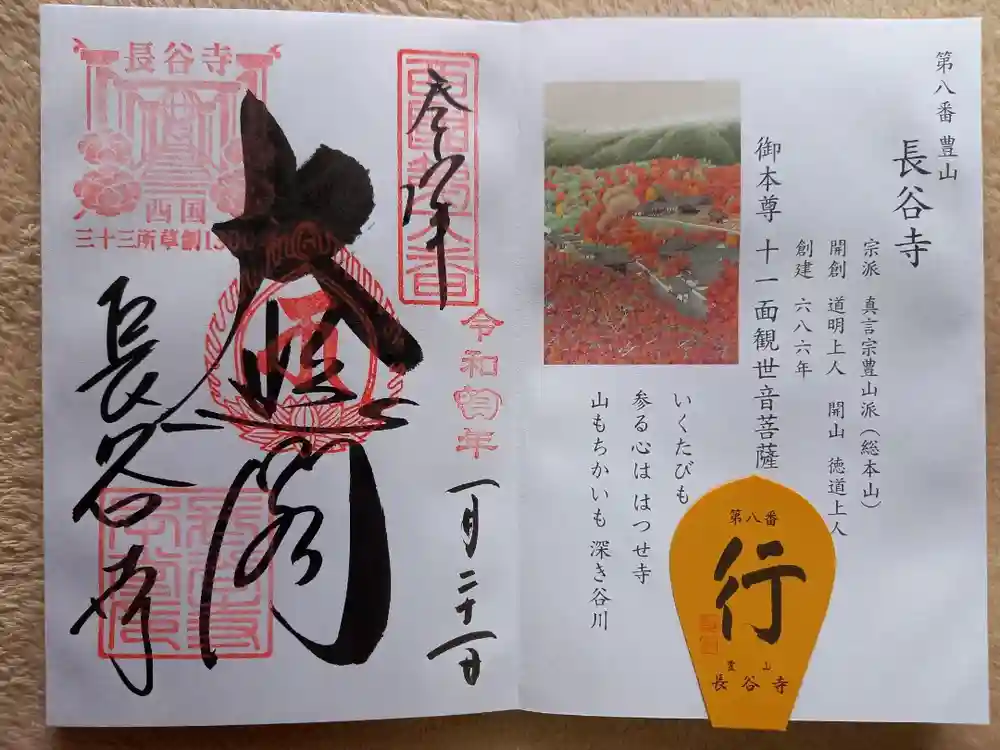 第八番 豊山
長谷寺
宗派 真言宗豊山派(総本山)
開創 道明上人 開山 徳道上人
創建 六八六年
御本尊 十一面観世音菩薩
いくたびも
参る心は はつせ寺
山もちかいも 深き谷川
第八番
行
豊山
長谷寺
奉拝
西國第八番
令和
年
一月二十一日
大悲閣
長谷寺
長谷寺
西国
三十三所草創